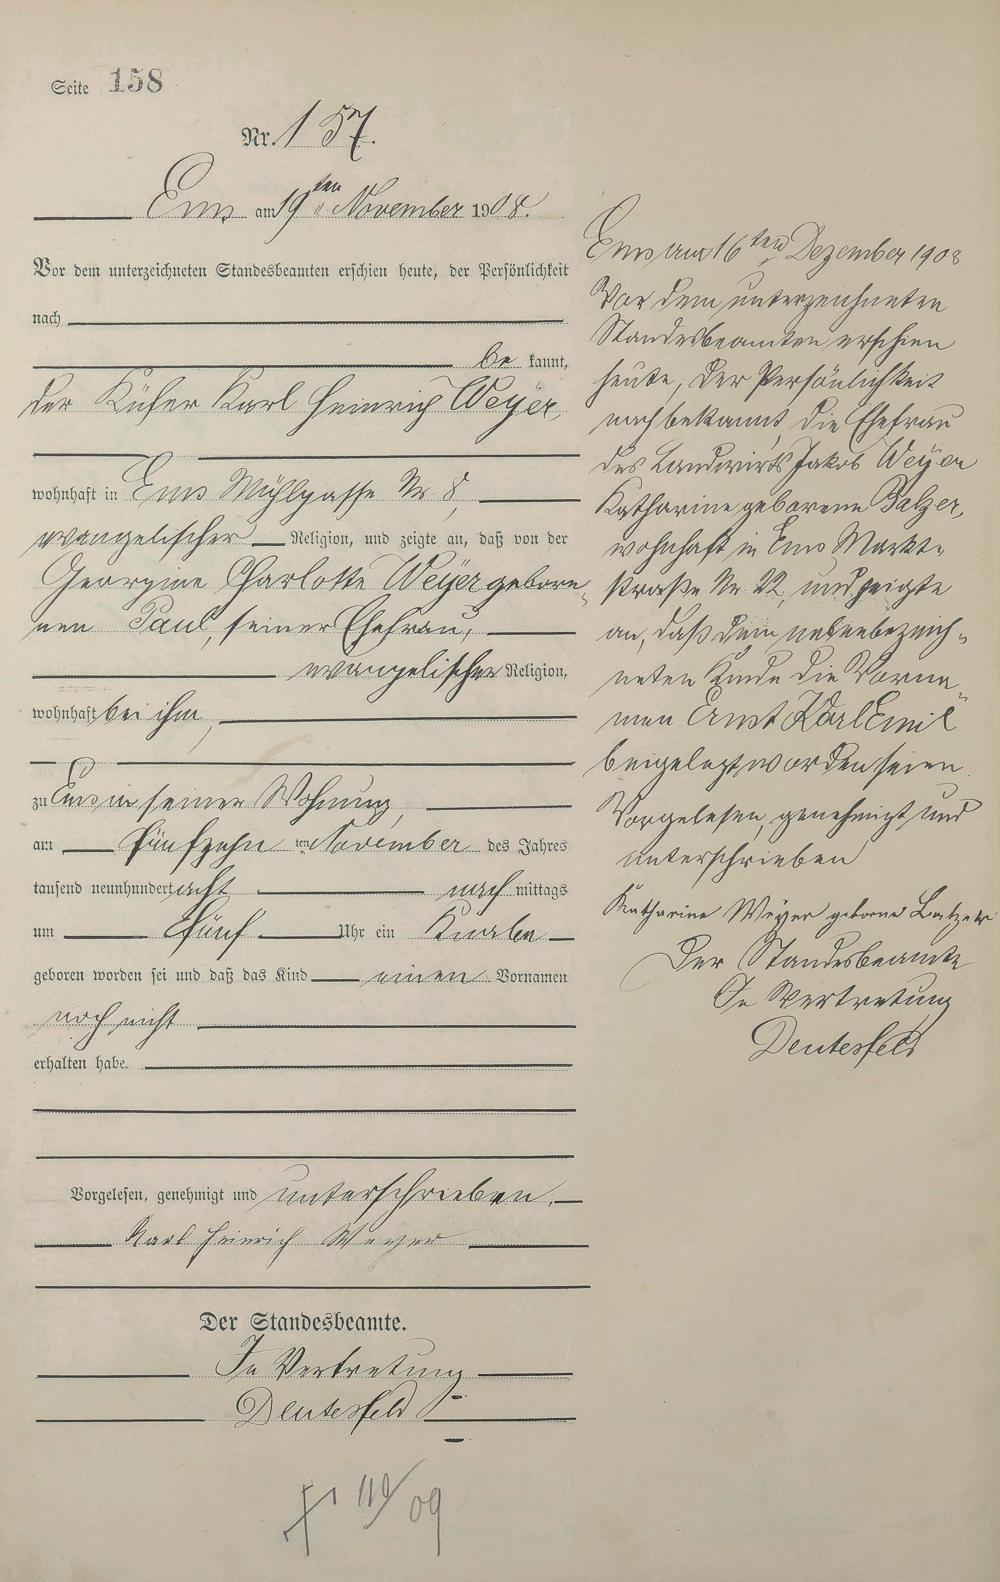 Seite 158
Nr. 157.
Ems am 19ten November 1908.
Vor dem unterzeichneten Standesbeamten erschien heute, der Persönlichkeit
nach
be kannt,
der Küfer Karl Heinrich Weyer,
wohnhaft in Ems Mühlgasse Nr 8,
evangelischer Religion, und zeigte an, daß von der
Georgine Charlotte Weyer gebore-
nen Paul, seiner Ehefrau,
evangelischer Religion,
wohnhaft bei ihm,
zu Ems in seiner Wohnung,
am fünfzehn ten November des Jahres
tausend neunhundert acht nach mittags
um fünf Uhr ein Knabe
geboren worden sei und daß das Kind einen Vornamen
noch nicht
erhalten habe.
Vorgelesen, genehmigt und unterschrieben.
Karl Heinrich Weyer
Der Standesbeamte.
In Vertretung
Deutesfeld
09
Ems am 16ten Dezember 1908
Vor dem unterzeichneten
Standesbeamten erschien
heute, der Persönlichkeit
nach bekannt, die Ehefrau
des Landwirts Jakob Weyer
Katharine geborene Balzer,
wohnhaft in Ems Markt-
straße Nr 22, und zeigte
an, daß dem nebenbezeich-
neten Kinde die Vorna-
men Ernst Karl Emil
beigelegt worden seien.
Vorgelesen, genehmigt und
unterschrieben
Katharine Weyer geborne Balzer
Der Standesbeamte
In Vertretung
Deutesfeld